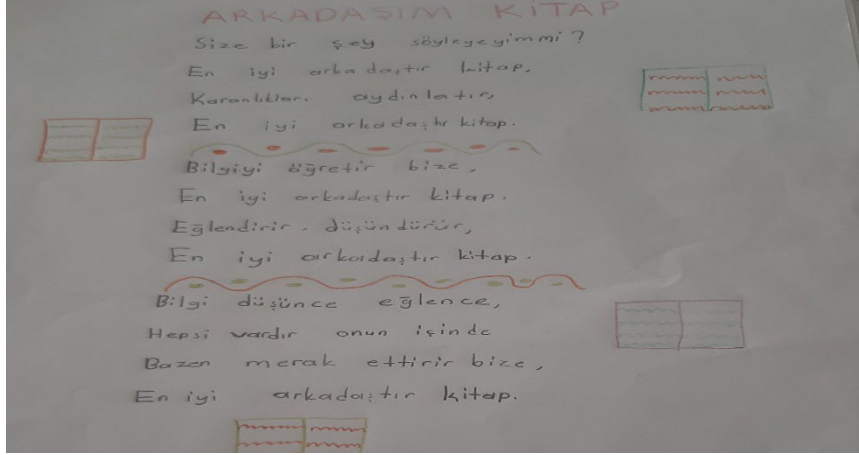 ARKADAŞIM KİTAP
Size bir şey söyleyeyimmi?
En iyi arkadaştır kitap,
Karanlıkları aydınlatır,
En iyi arkadaştır kitap.
Bilgiyi öğretir bize,
En iyi arkadaştır kitap.
Eğlendirir - düşündürür,
En iyi arkadaştır kitap.
Bilgi düşünce eğlence,
Hepsi vardır onun içinde
Bazen merak ettirir bize,
En iyi arkadaştır kitap.